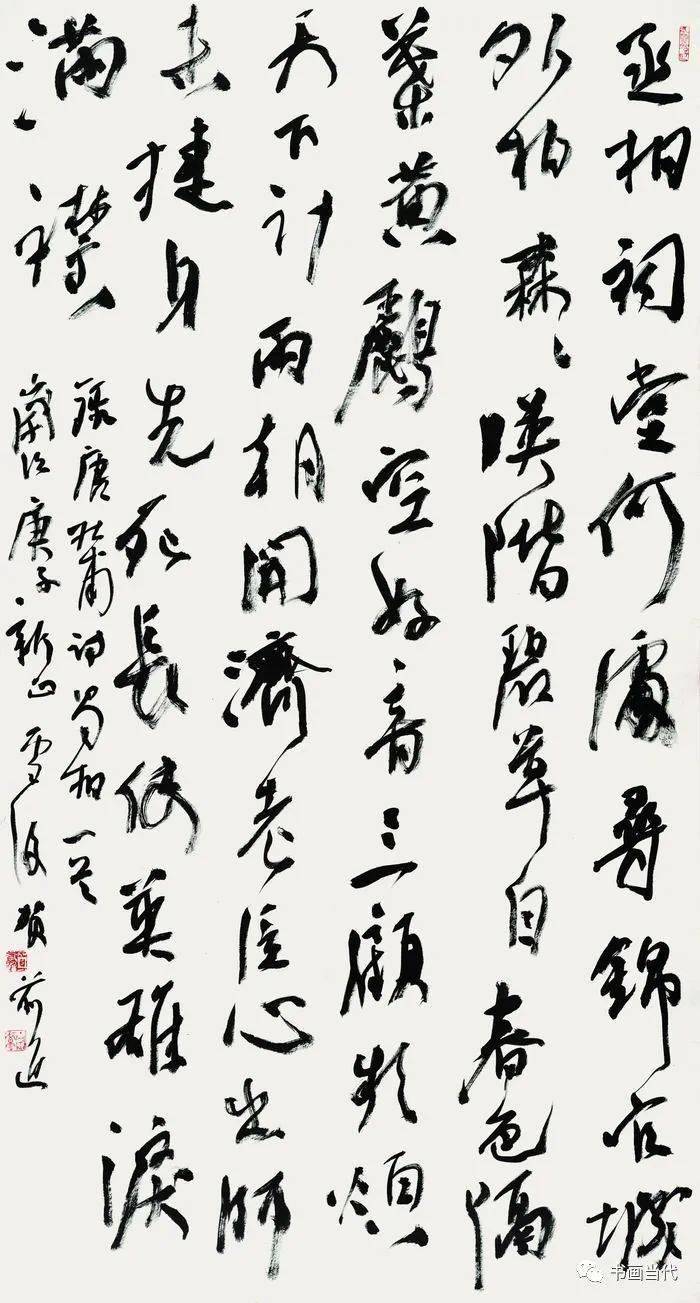 丞相祠堂何處尋錦官城
外柏森〻暎階碧草自春色隔
葉黃鸝空好音三顧頻煩
天下計兩朝開濟老臣心出師
未捷身先死長使英雄淚
滿襟
錄唐杜甫詩蜀相一首
歲次庚子新正雪後賀前進
书画当代